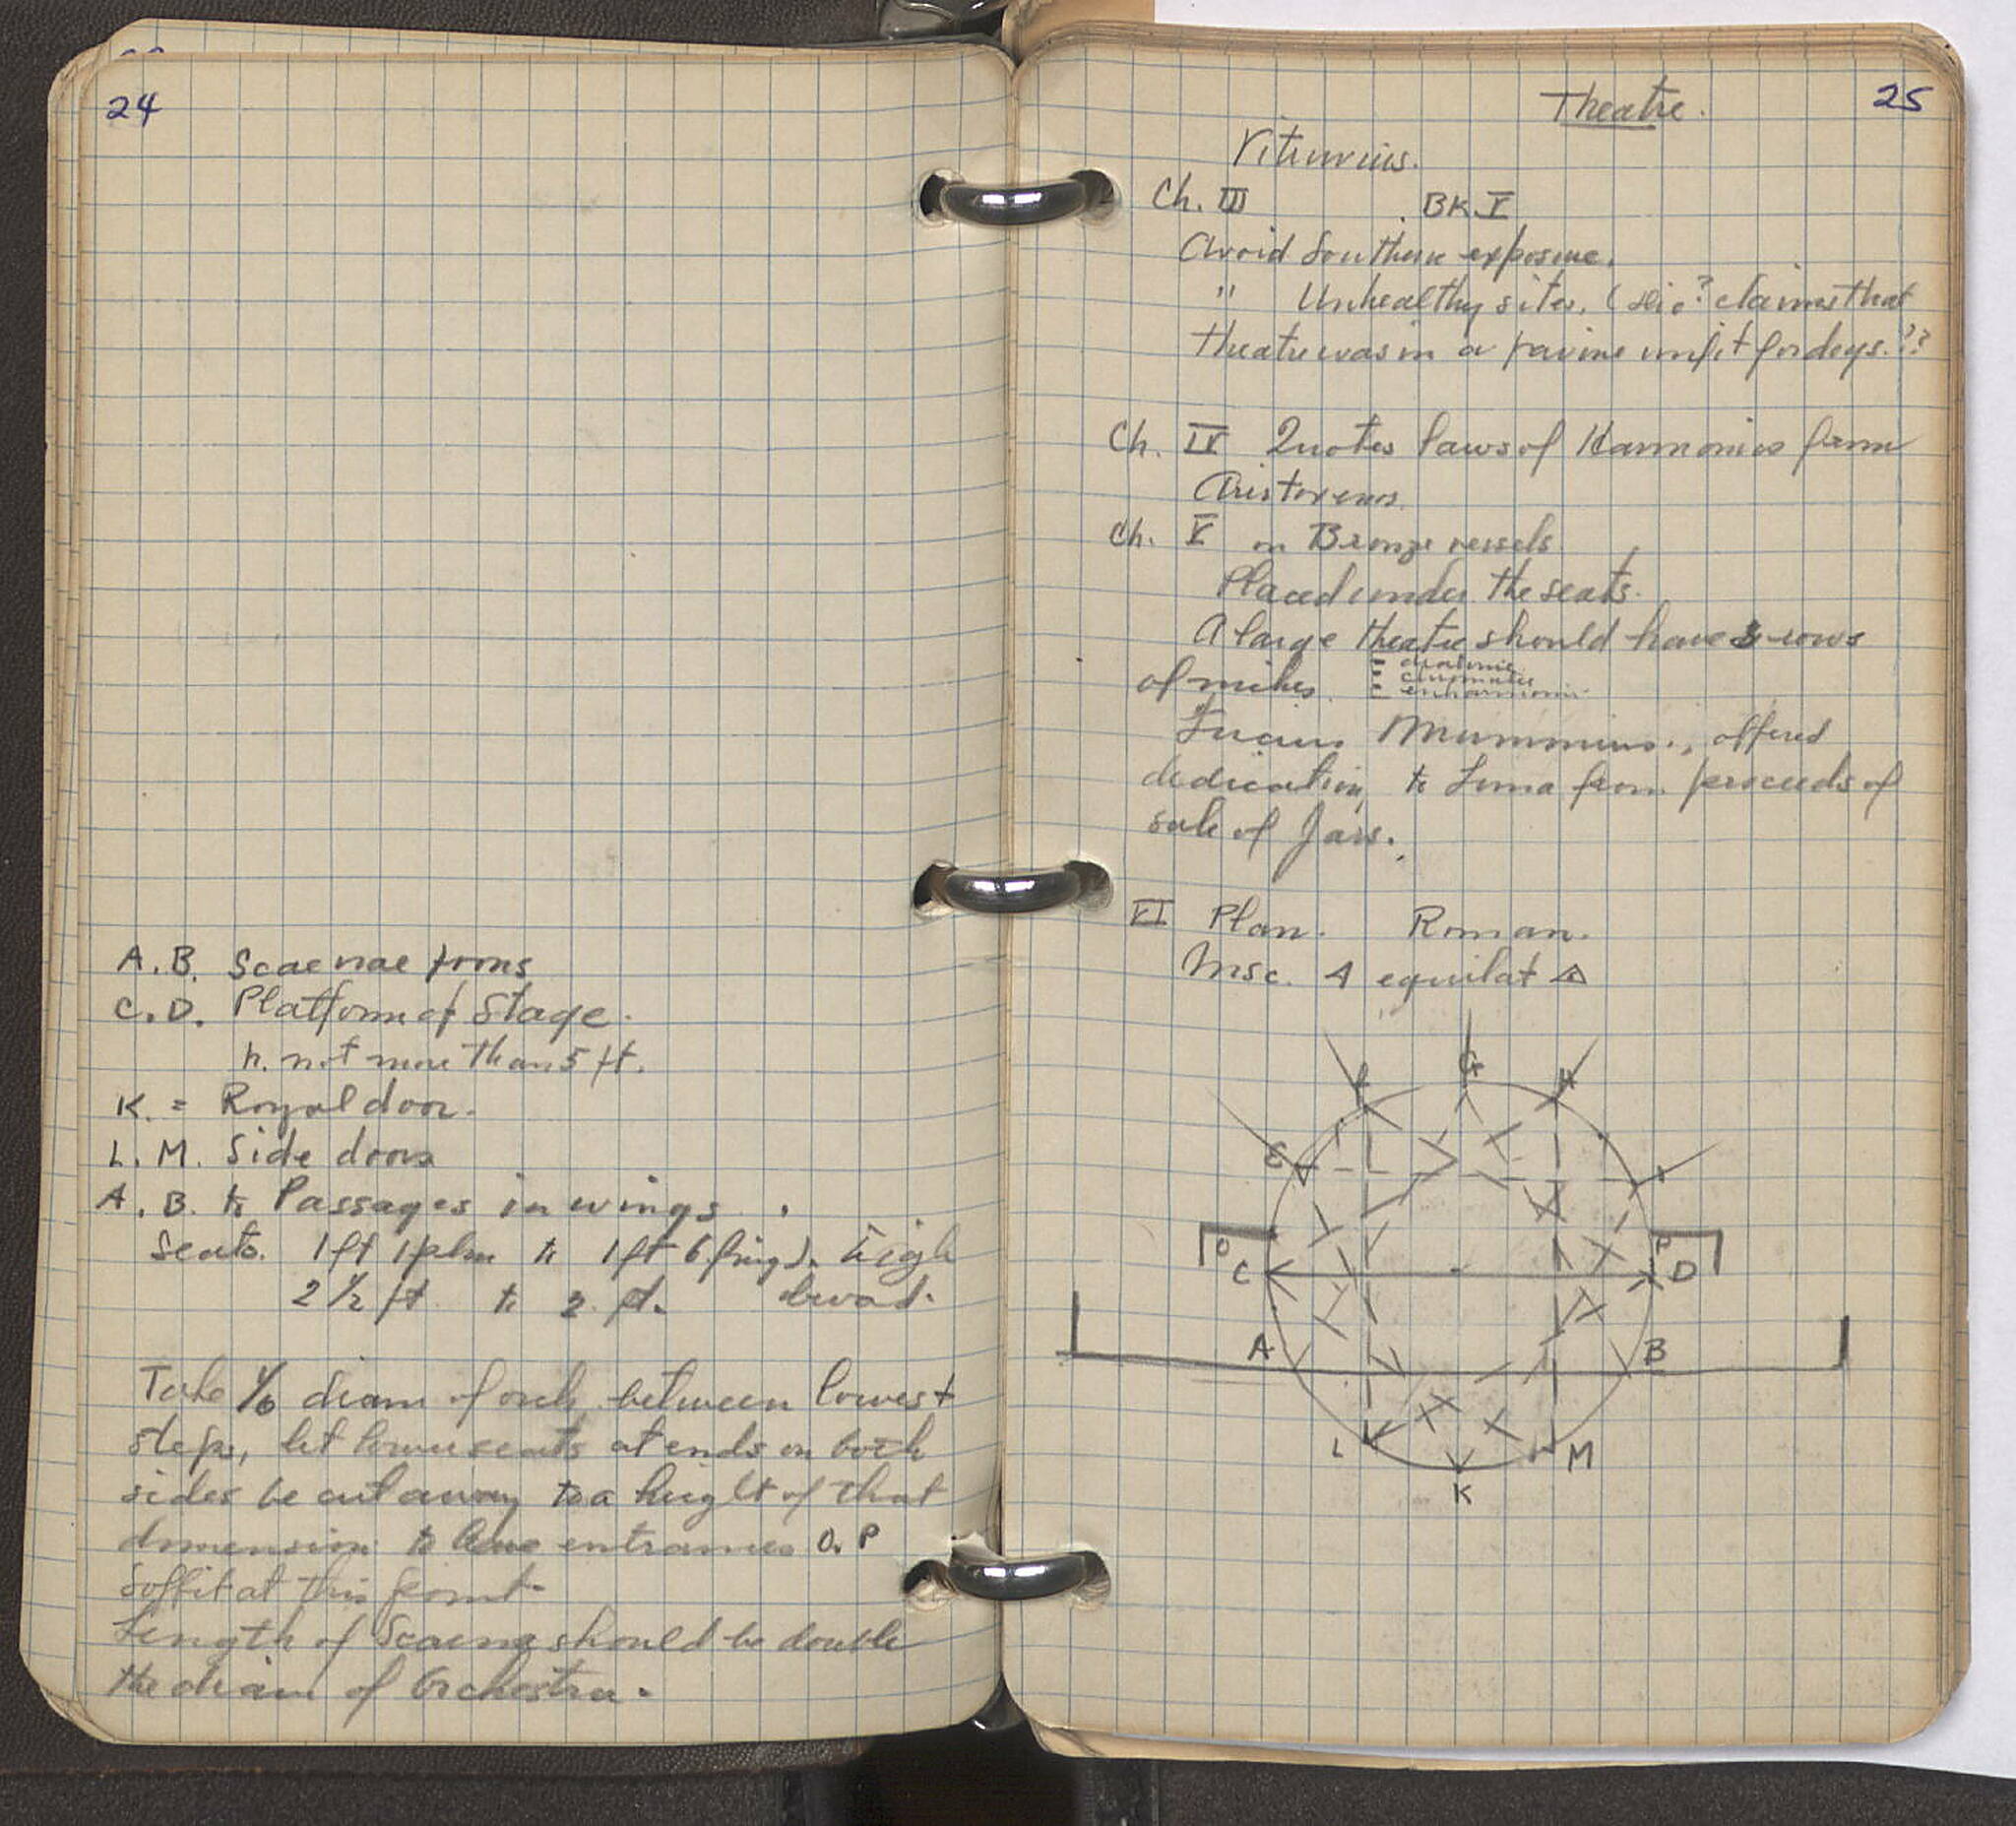 24
A. B. Scaenae frons
C. D. Platform of Stage.
h. not more than 5 ft.
K. = Royal door.
L. M. Side doors
A. B. to Passages in wings.
Seats. 1 ft 1 plm to 1 ft 6 fing). high
2 1/2 ft to 2 ft. broad.
Take 1/6 diam of orch between lowest
steps, let lower seats at ends on both
sides be cut away to a height of that
dimension to entrances O. P
Soffit at this point.
Length of Scaena should be double
the diam of Orchestra.
25
Theatre.
Vitruvius.
Ch. III BK V
Avoid Southern exposure.
" Unhealthy sites. ( ? claims that
theatre was in a ravine unfit for dogs.??
Ch. IV Quotes laws of Harmonics from
Aristoxenus.
Ch. V on Bronze vessels
Placed under the seats.
A large theatre should have 3 rows
of niches. - diatonic
- chromatic
- enharmonic
Lucius Mummius., offered
dedication to Luna from proceeds of
sale of Jars.
VI Plan. Roman.
Insc. 4 equilat △
F G H
E I
O P
C D
A B
L M
K